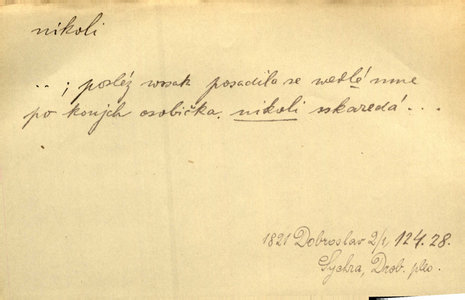 nikoli
...; posléz wssak posadila se wedlé mne
po konjch osobička, nikoli sskaredá...
1821 Dobroslav 2/1, 124.28.
Sychra, Drob. pko.